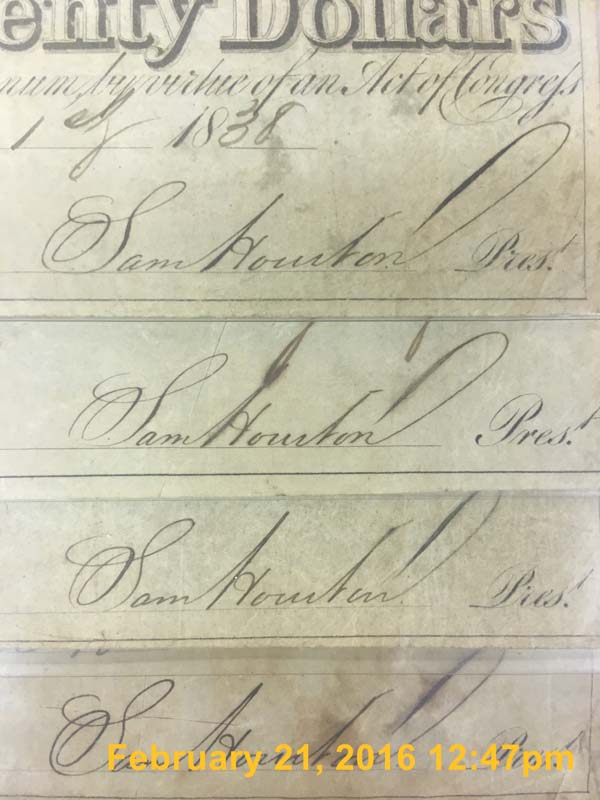 enty Dollars
num, by virtue of an Act of Congress
1838
Sam Houston Prest.
Sam Houston Prest.
Sam Houston Prest.
Sam Houston
February 21, 2016 12:47pm